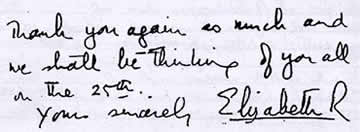 Thank you again so much and
we shall be thinking of you all
on the 25th.
Yours sincerely Elizabeth R